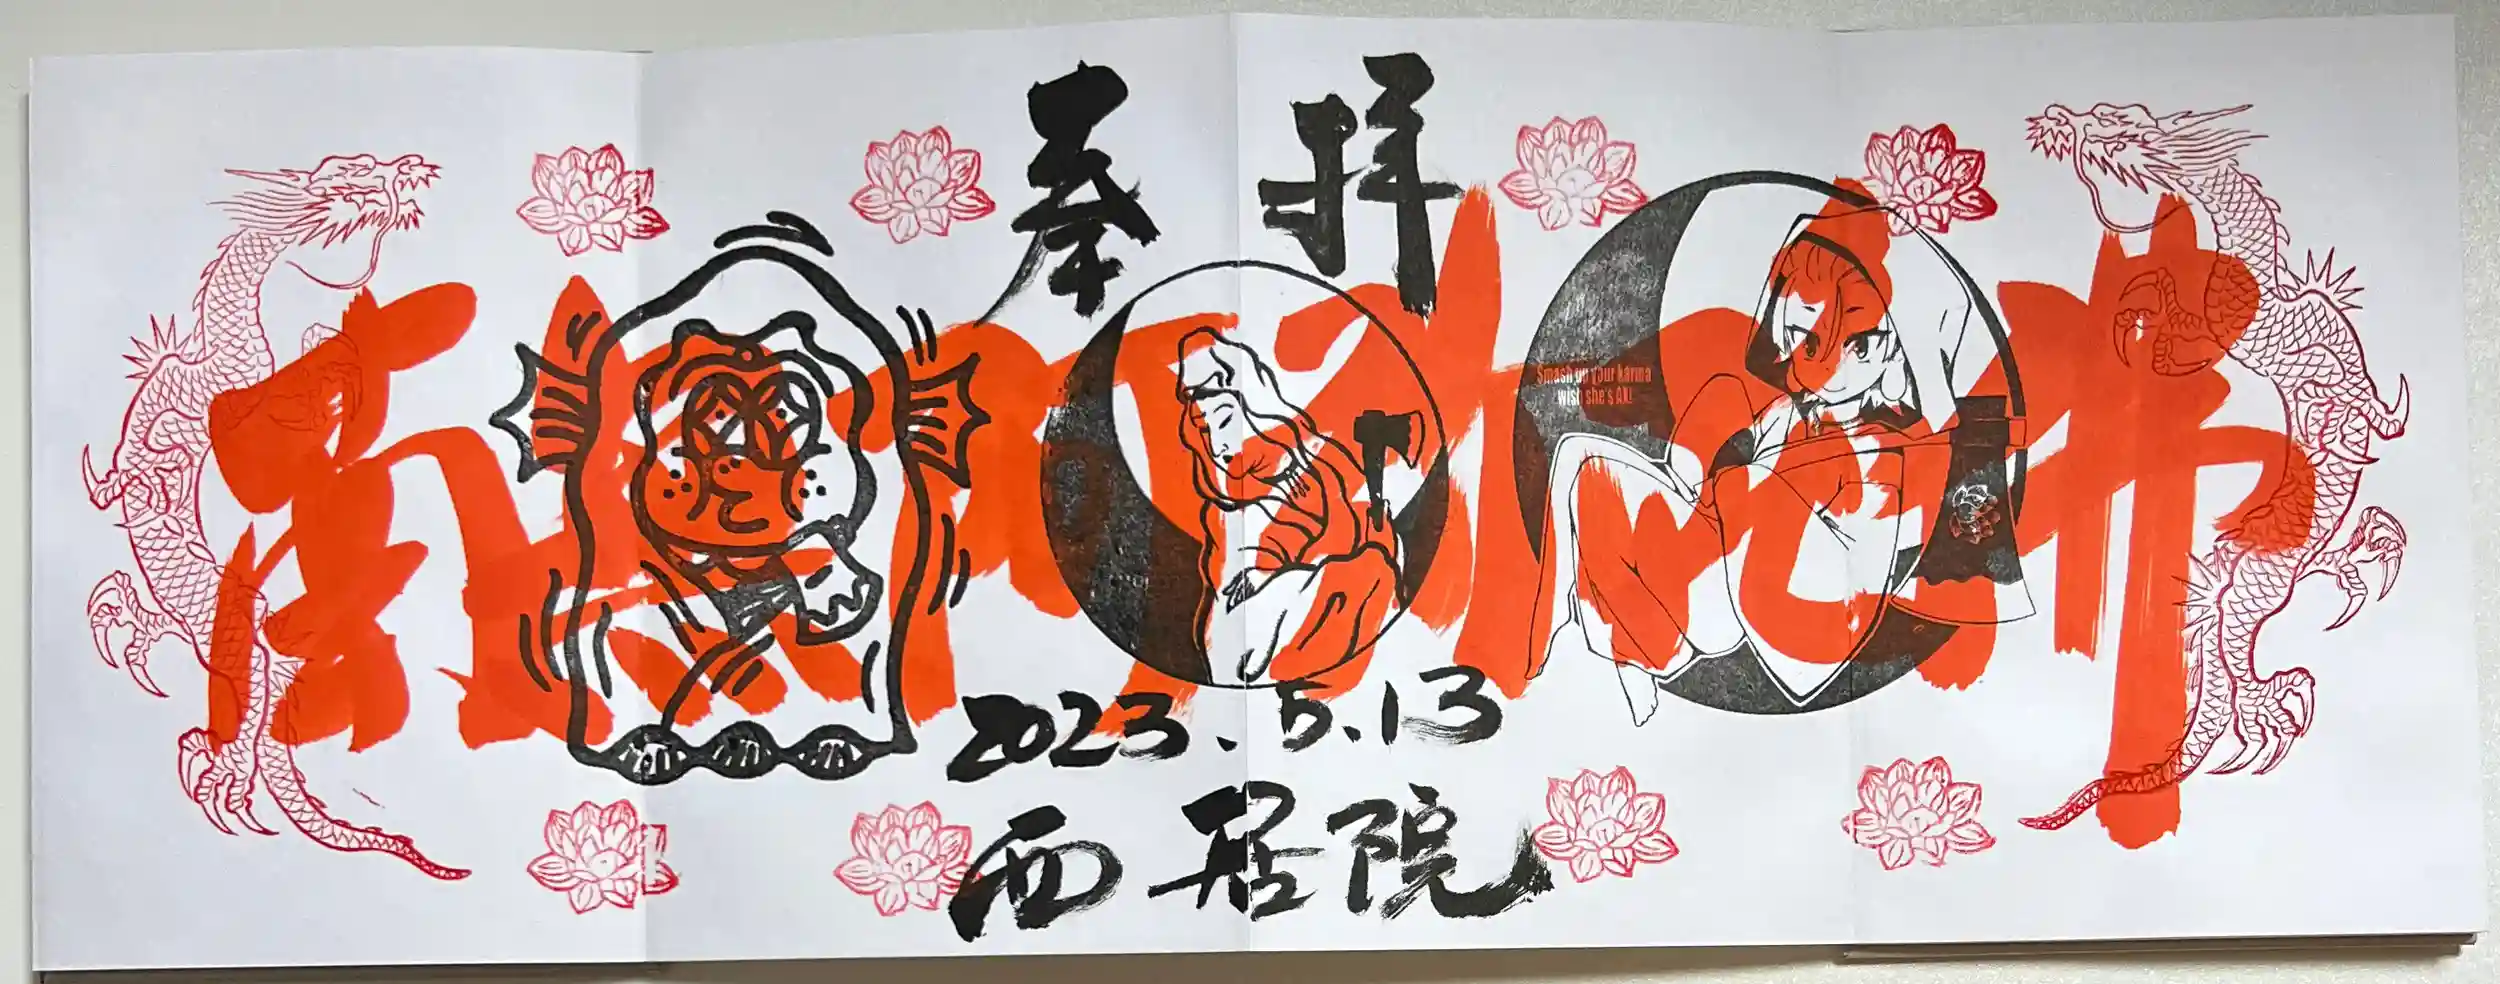 奉拝
南無阿弥陀佛
Smash up your karma
wish she's AX!
2023.5.13
西居院